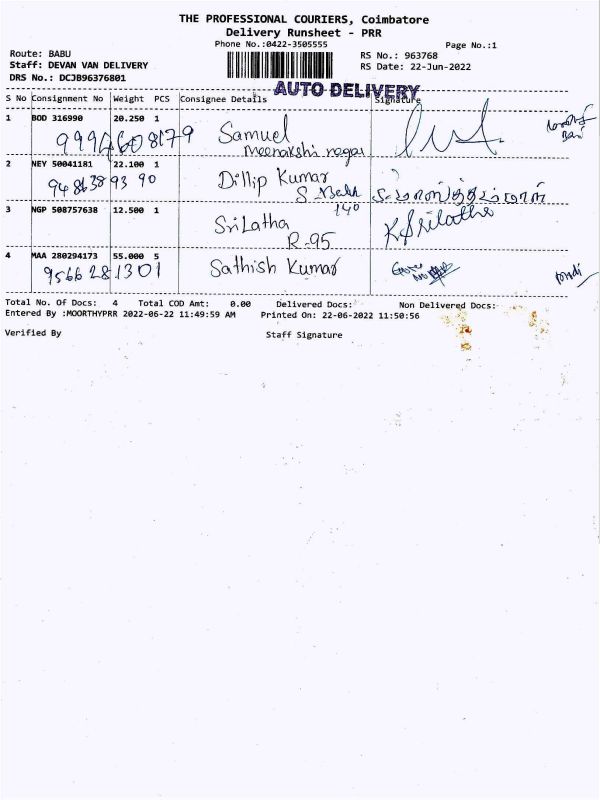 THE PROFESSIONAL COURIERS, Coimbatore
Delivery Runsheet - PRR
Phone No.:0422-3505555
Page No.:1
Route: BABU
RS No.: 963768
Staff: DEVAN VAN DELIVERY
RS Date: 22-Jun-2022
DRS No.: DCJB96376801
AUTO DELIVERY
S No Consignment No Weight PCS Consignee Details Signature
1 BOD 316990 20.250 1 Samuel
9994608179 meenakshi nagar
2 NEY 50041181 22.100 1 Dillip Kumar
9486389390 S
140
3 NGP 508757638 12.500 1 SriLatha K Srilatha
R-95
4 MAA 280294173 55.000 5 Sathish Kumar
9566281301
Total No. Of Docs: 4 Total COD Amt: 0.00 Delivered Docs: Non Delivered Docs:
Entered By :MOORTHYPRR 2022-06-22 11:49:59 AM Printed On: 22-06-2022 11:50:56
Verified By Staff Signature